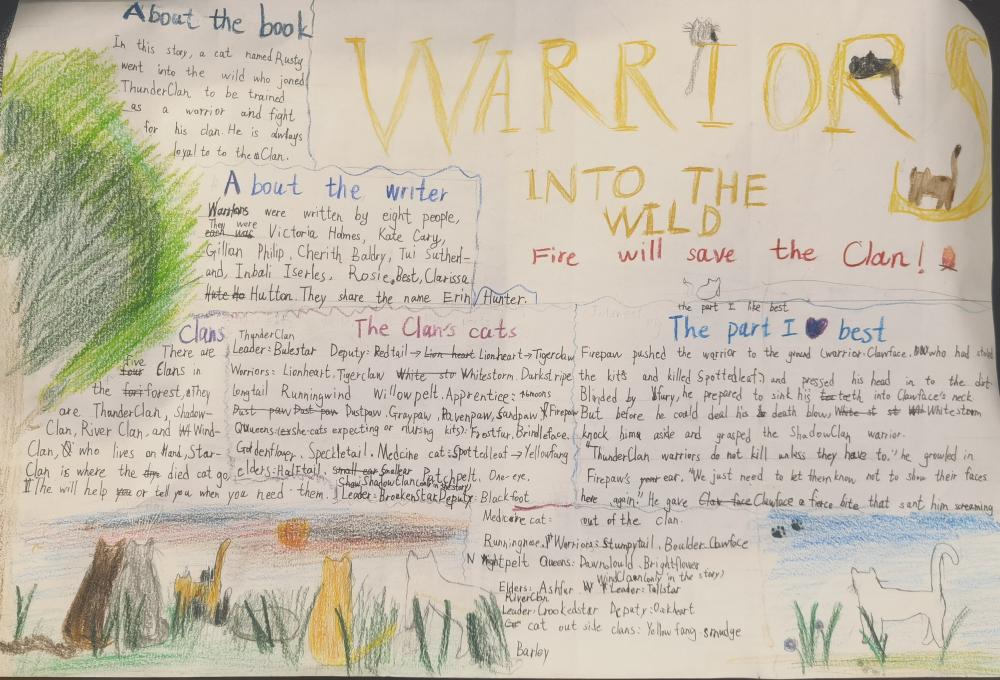 About the book
In this story, a cat named Rusty
went into the wild who joned
ThunderClan to be trained
as a warrior and fight
for his clan. He is always
loyal to to the Clan.
WARRIORS
INTO THE
WILD
Fire will save the Clan!
About the writer
Warriors were written by eight people,
They were
each was Victoria Holmes, Kate Cary,
Gillan Philip, Cherith Baldry, Tui Suther-
and, Inbali Iserles, Rosie Best, Clarissa
Hutton. They share the name Erin Hunter.
Clans
There are
five
four Clans in
the forest, They
are ThunderClan, Shadow-
Clan, River Clan, and Wind-
Clan, who lives on Land, Star-
Clan is where the died cat go,
The will help you or tell you when you need them.
The Clan's cats
ThunderClan
Leader: Bulestar Deputy: Redtail → Lion heart Lionheart → Tigerclaw
Warriors: Lionheart, Tigerclaw White sto Whitestorm, Darkstripe
Longtail Runningwind Willowpelt. Apprentice:
Dust paw Dustpaw, Graypaw, Ravenpaw, Sandpaw Firepaw
Queens: (she-cats expecting or nursing kits): Frostfur, Brindleface.
Goldenflower, Speckletail. Medcine cat: Spottedleaf → Yellowfang
elders: Halftail, small ear Smallear Patchpelt, One-eye,
ShadowClan
Leader: BrokenStar Deputy: Blackfoot
Medicine cat: out of the clan.
Runningnose, Warriors: Stumpytail, Boulder, Clawface
Nightpelt Queens: Dawncloud, Brightflower
WindClan (only in the story)
Elders: Ashfur Leader: Tallstar
RiverClan
Leader: Crookedstar Deputy: Oakheart
cat out side clans: Yellowfang smudge
Barley
the part I like best
The part I best
Firepaw pushed the warrior to the ground (warrior: Clawface, who had stoled
the kits and killed Spottedleaf) and pressed his head in to the dirt.
Blinded by fury, he prepared to sink his teeth into Clawface's neck
But before he could deal his death blow, Whitestorm
knock him aside and grasped the ShadowClan warrior.
"ThunderClan warriors do not kill unless they have to," he growled in
Firepaw's ear. "We just need to let them know not to show their faces
here again." He gave Clawface a fierce bite that sant him screaming